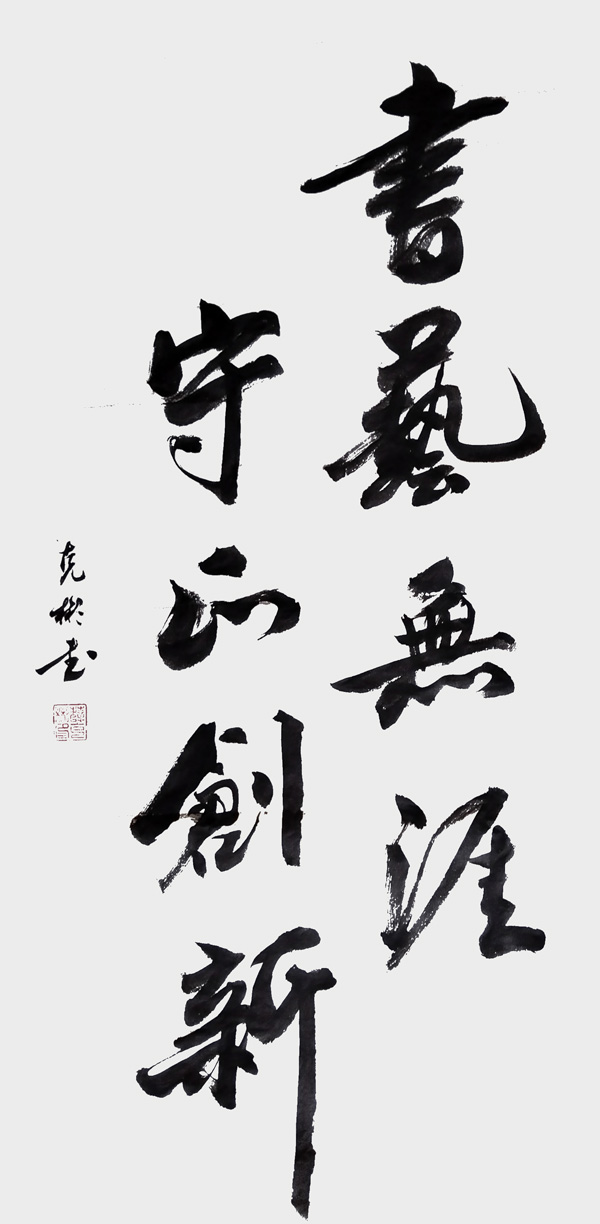 書藝無涯
守正創新
克彬書